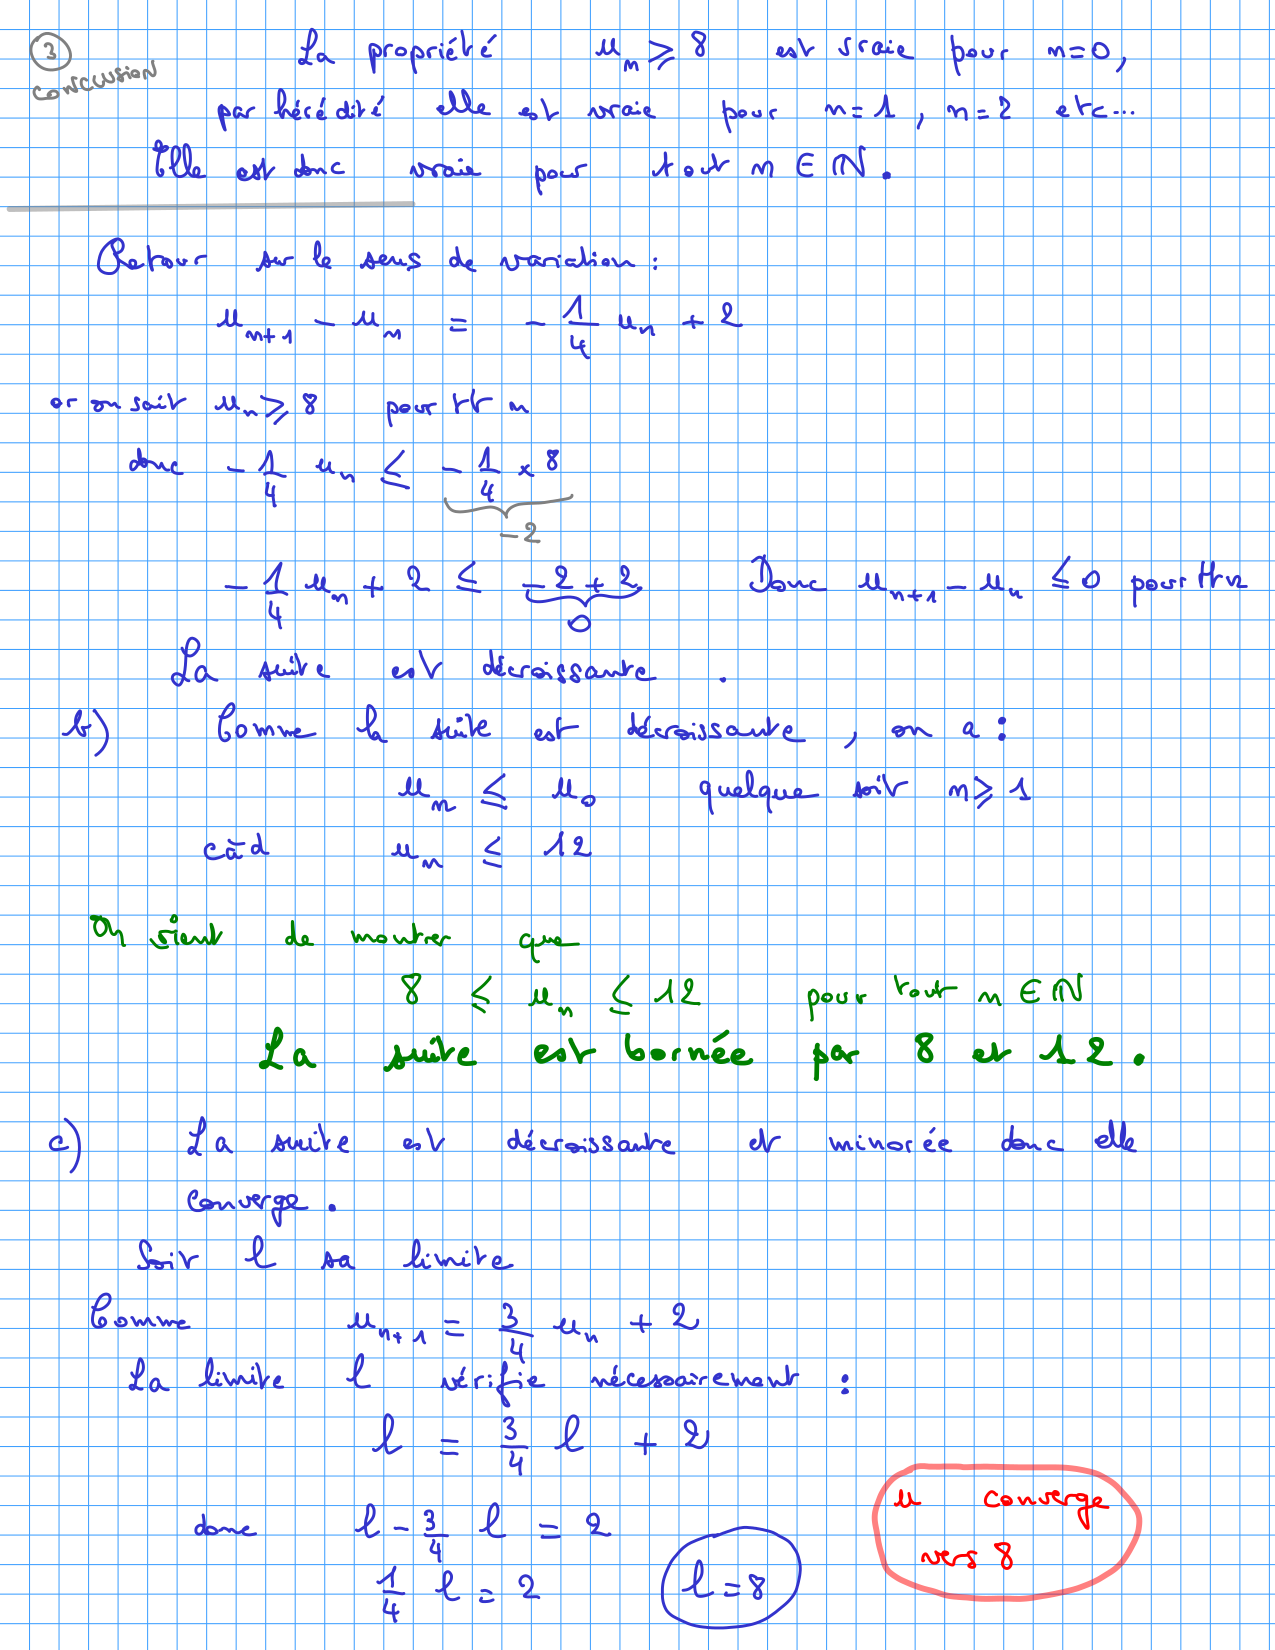 ③ La propriété u_n ⩾ 8 est vraie pour n=0,
CONCLUSION
par hérédité elle est vraie pour n=1, n=2 etc...
Elle est donc vraie pour tout n ∈ ℕ.
Retour sur le sens de variation :
u_{n+1} - u_n = - 1/4 u_n + 2
or on sait u_n ⩾ 8 pour tt n
donc - 1/4 u_n ≤ - 1/4 × 8
-2
- 1/4 u_n + 2 ≤ -2 + 2 Donc u_{n+1} - u_n ≤ 0 pour tt n
0
La suite est décroissante.
b) Comme la suite est décroissante, on a :
u_n ≤ u_0 quelque soit n ⩾ 1
càd u_n ≤ 12
On vient de montrer que
8 ≤ u_n ≤ 12 pour tout n ∈ ℕ
La suite est bornée par 8 et 12.
c) La suite est décroissante et minorée donc elle
converge.
Soit l sa limite
Comme u_{n+1} = 3/4 u_n + 2
La limite l vérifie nécessairement :
l = 3/4 l + 2
donc l - 3/4 l = 2
1/4 l = 2 l = 8
u converge
vers 8